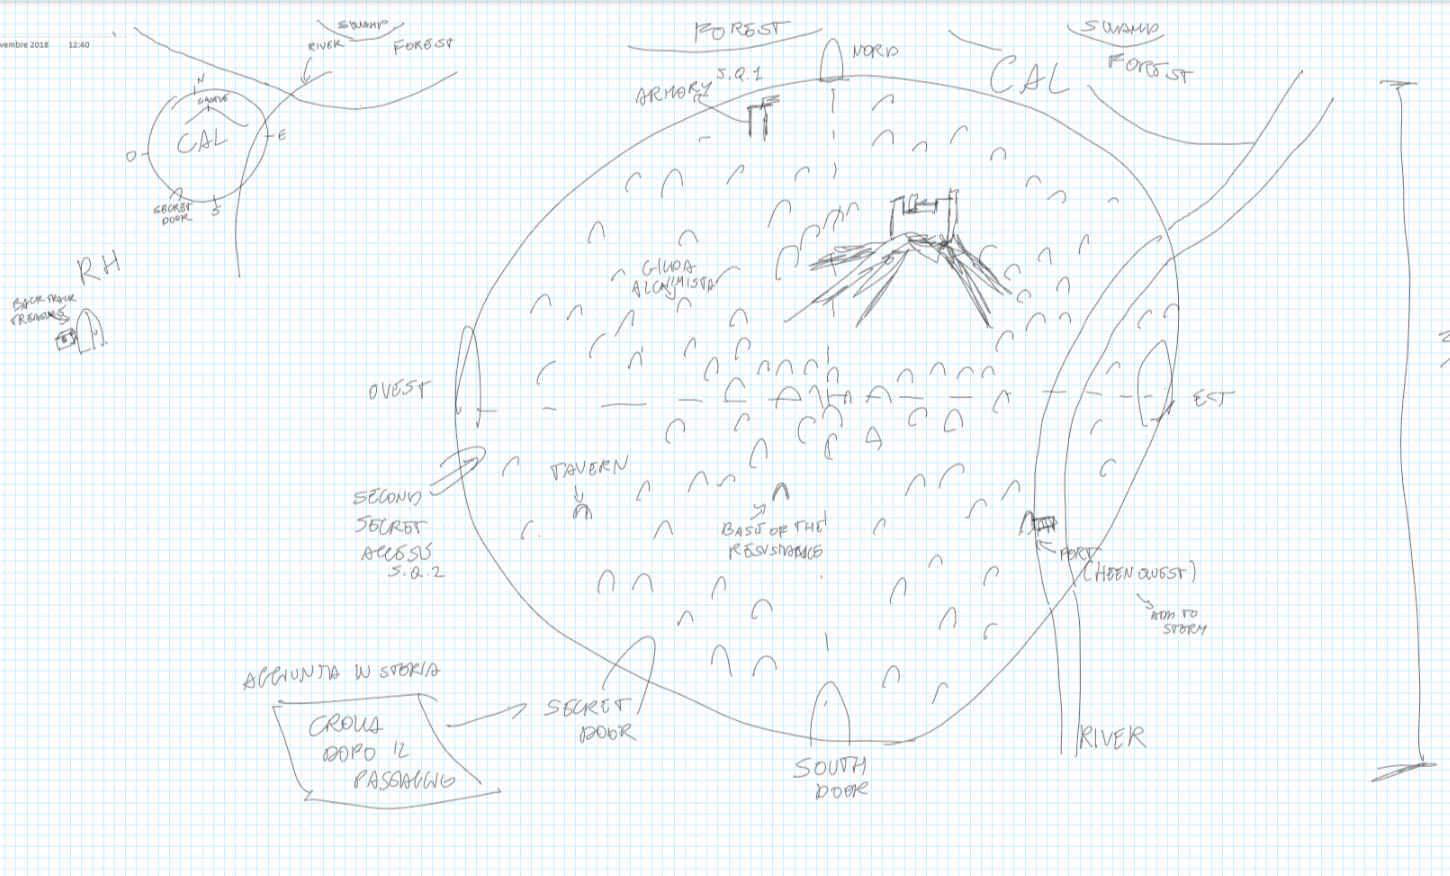 vembre 2018 12:40
SWAMP
RIVER
FOREST
N
CASTLE
CAL
O
E
SECRET
DOOR
S
RH
BACKTRACK
TREASURE
FOREST
NORD
S.Q.1
ARMORY
CAL
SWAMP
FOREST
GILDA
ALCHIMISTA
OVEST
EST
SECOND
SECRET
ACCESS
S.Q.2
TAVERN
BASE OF THE
RESISTANCE
PORT
(HEEN QUEST)
ADD TO
STORY
AGGIUNTA IN STORIA
CROLLA
DOPO IL
PASSAGGIO
SECRET
DOOR
SOUTH
DOOR
RIVER